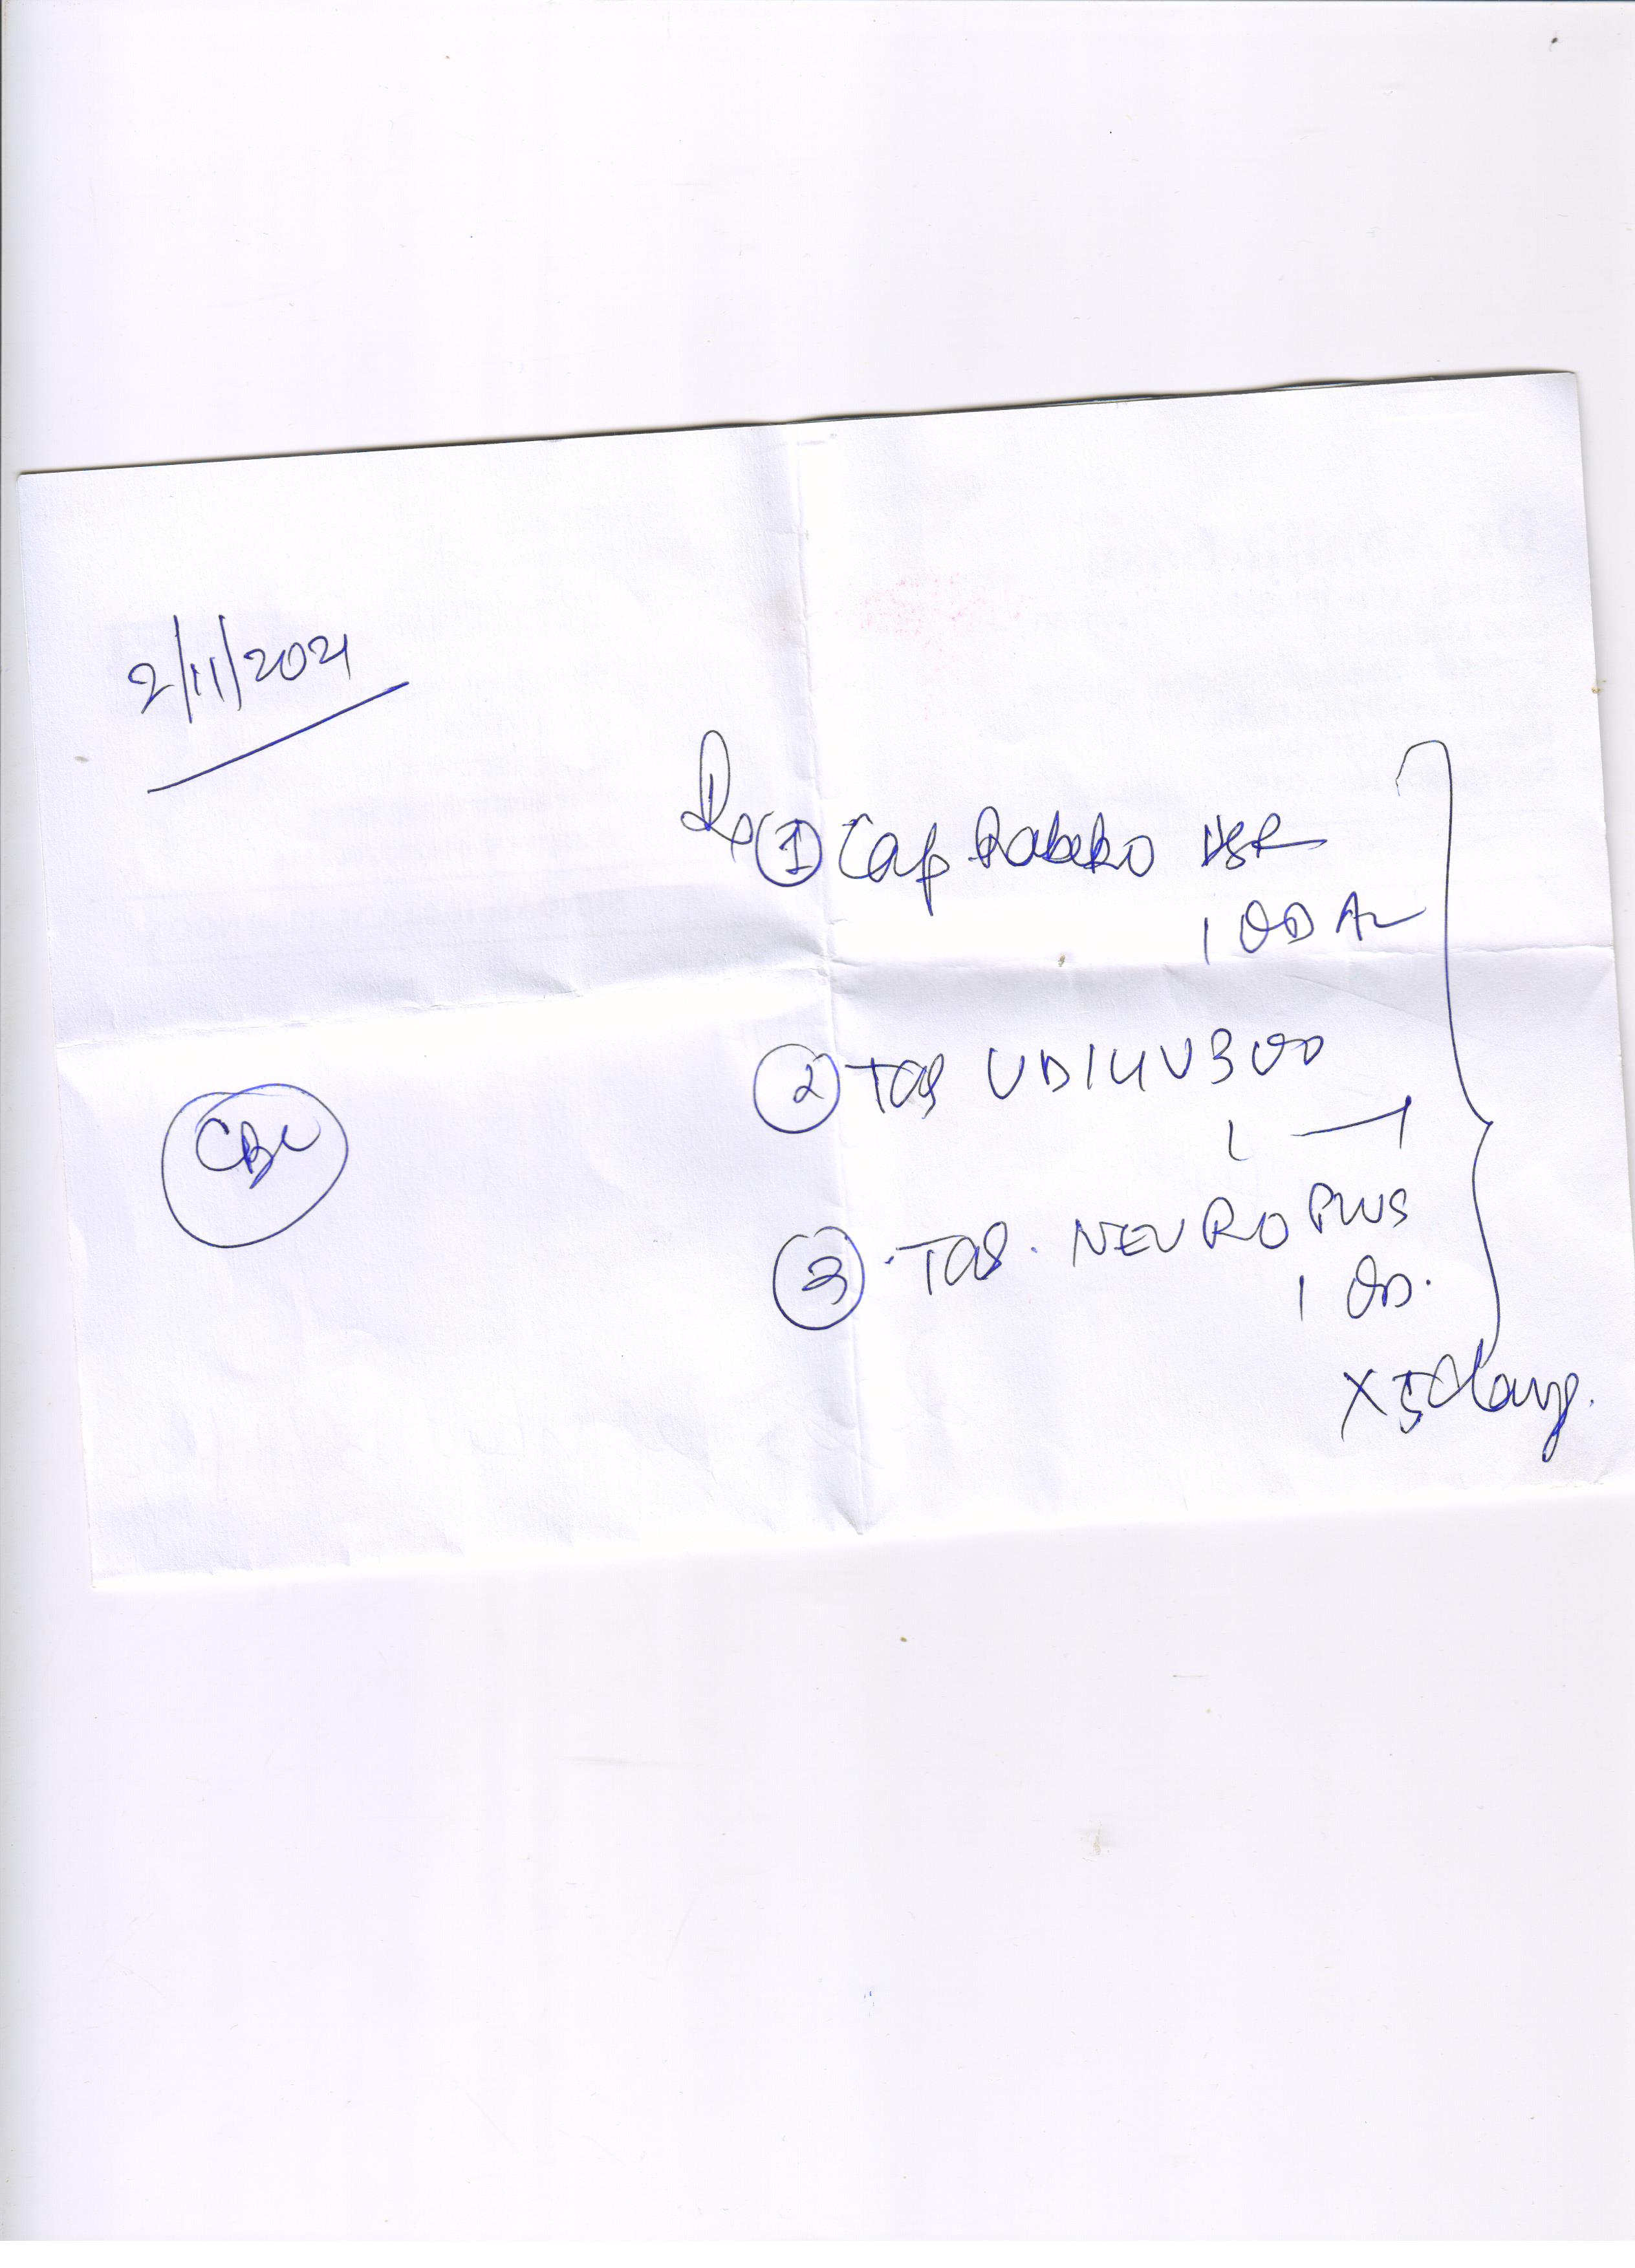 2/11/2021
Rx ① Cap Rabeko DSR
1 OD AC
② Tab UDILIV 300
1 — 1
CBC
③ Tab. NEURO PLUS
1 OD.
x 5 days.